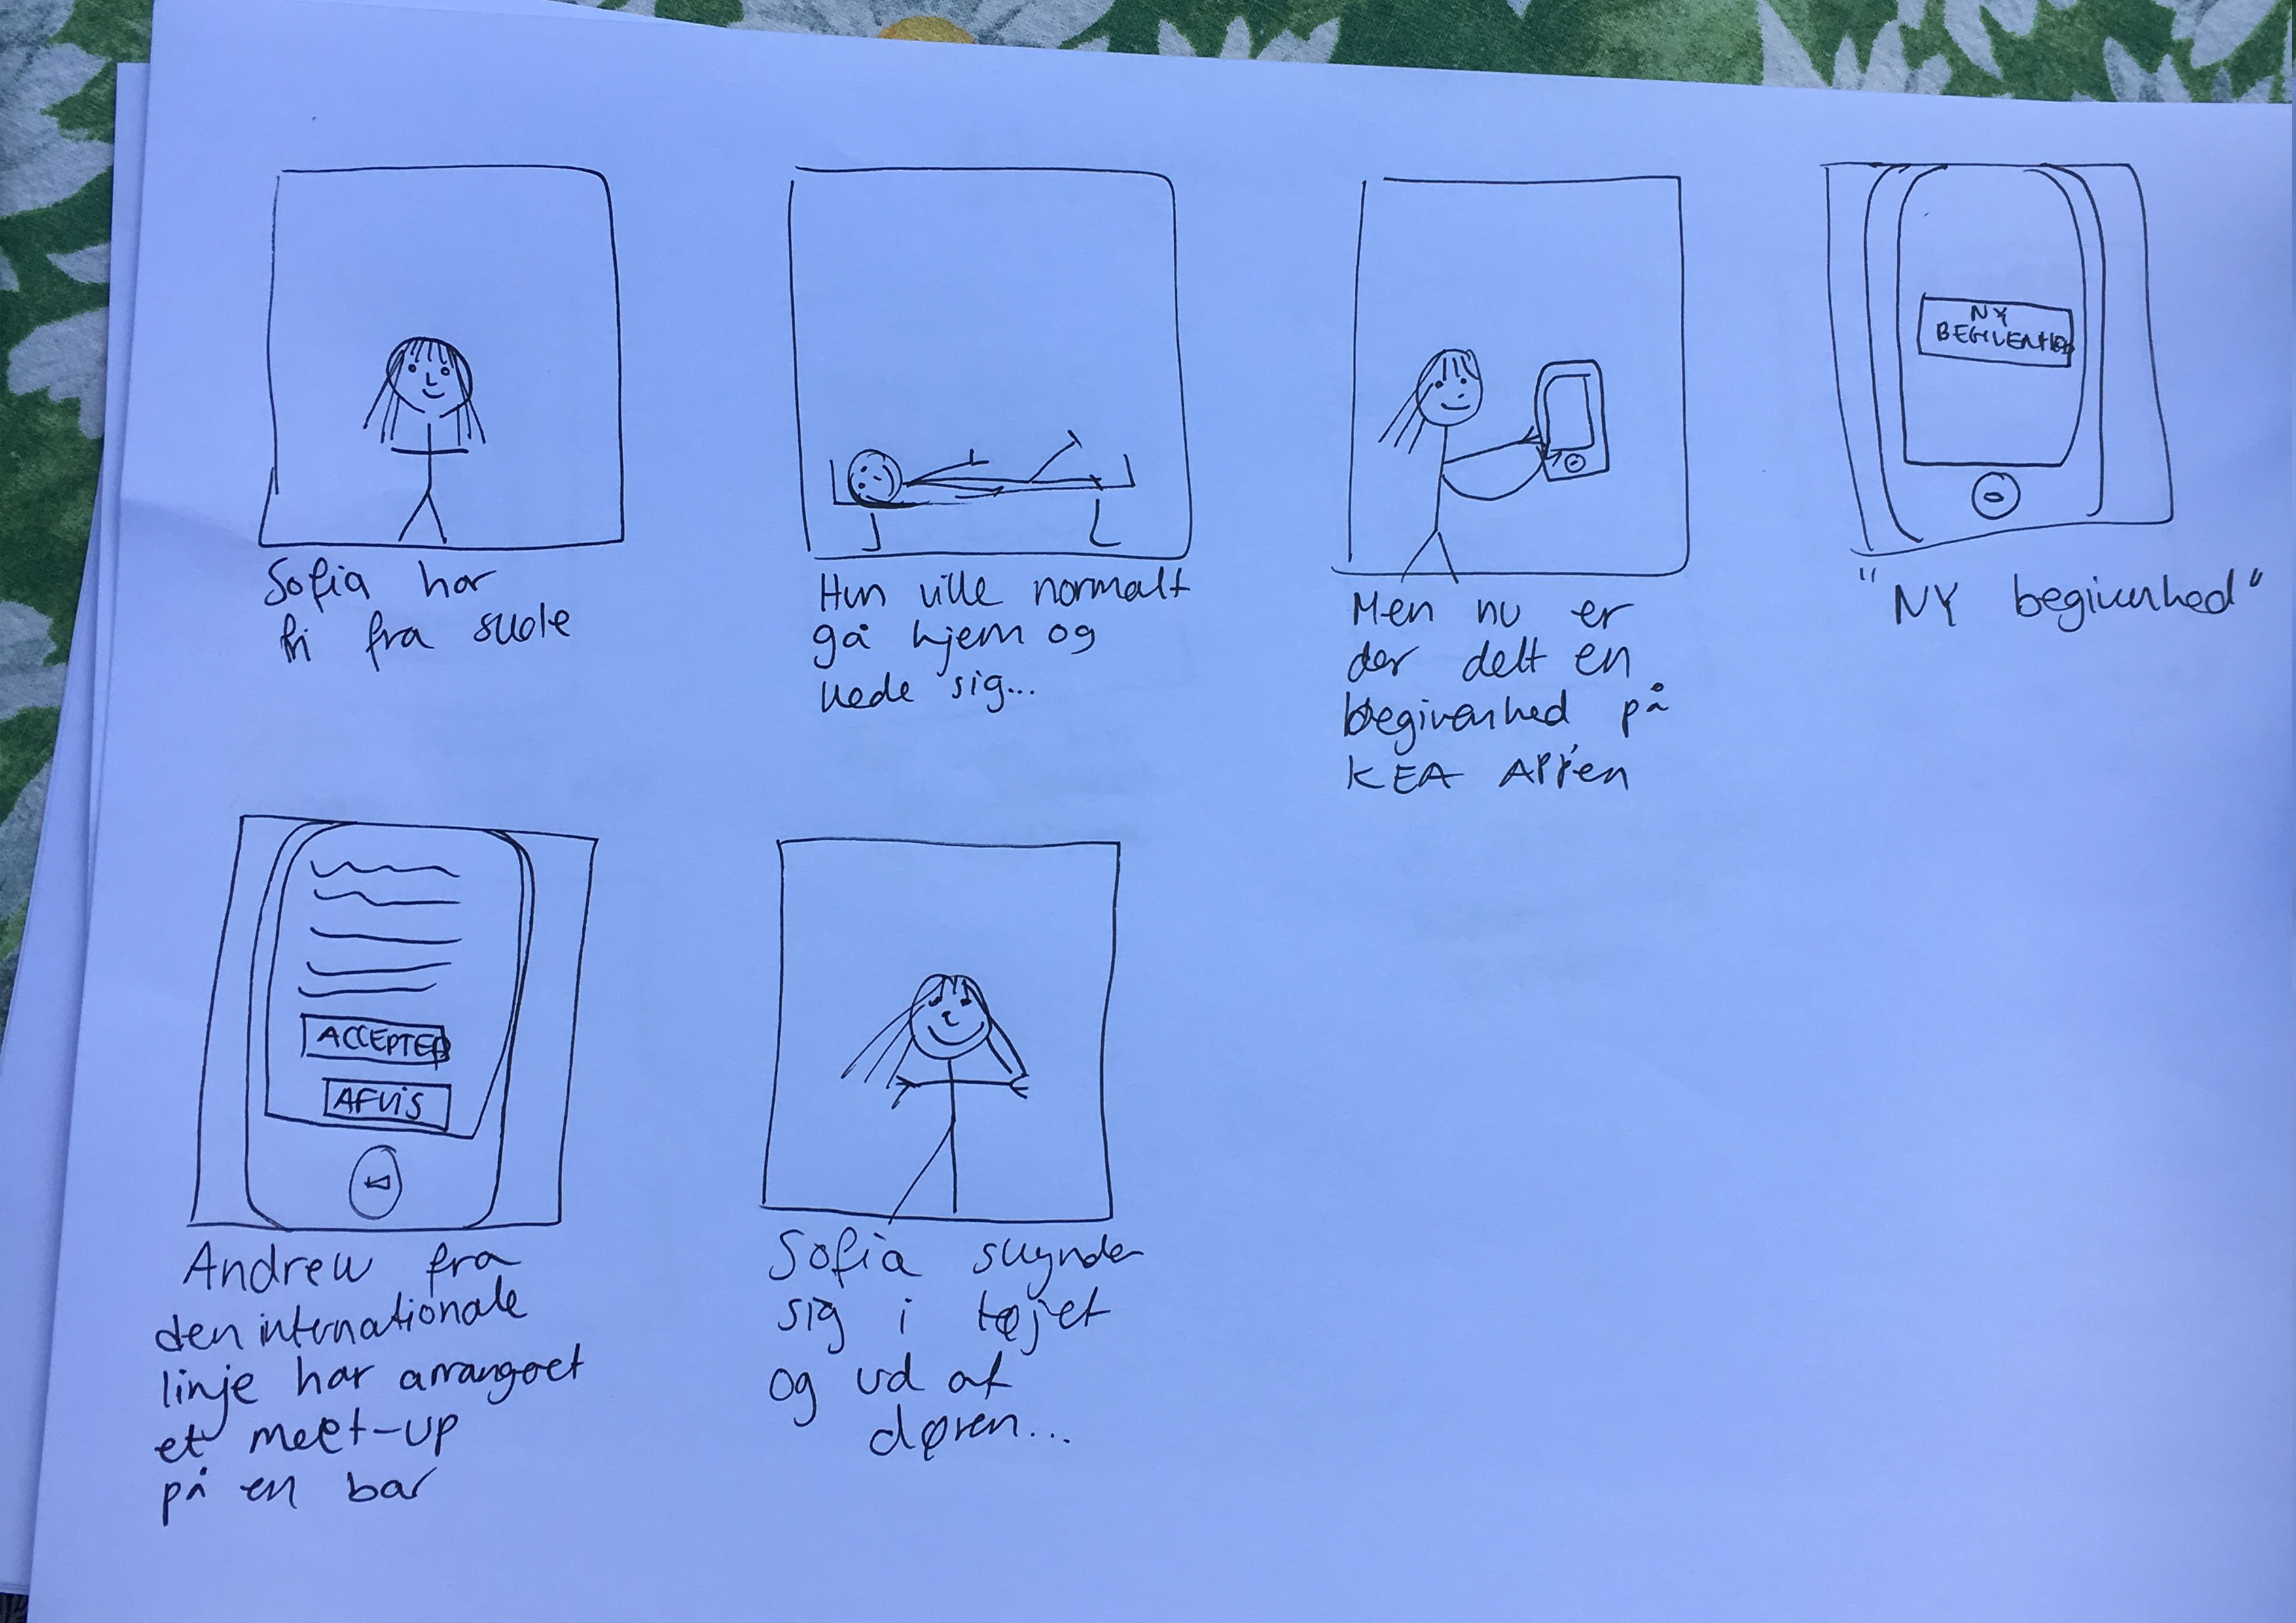 Sofia har
fri fra skole
Hun ville normalt
gå hjem og
kede sig...
Men nu er
der delt en
begivenhed på
KEA APP'en
NY
BEGIVENHED
"NY begivenhed"
ACCEPTER
AFVIS
Andrew fra
den internationale
linje har arrangeret
et meet-up
på en bar
Sofia skynder
sig i tøjet
og ud af
døren...